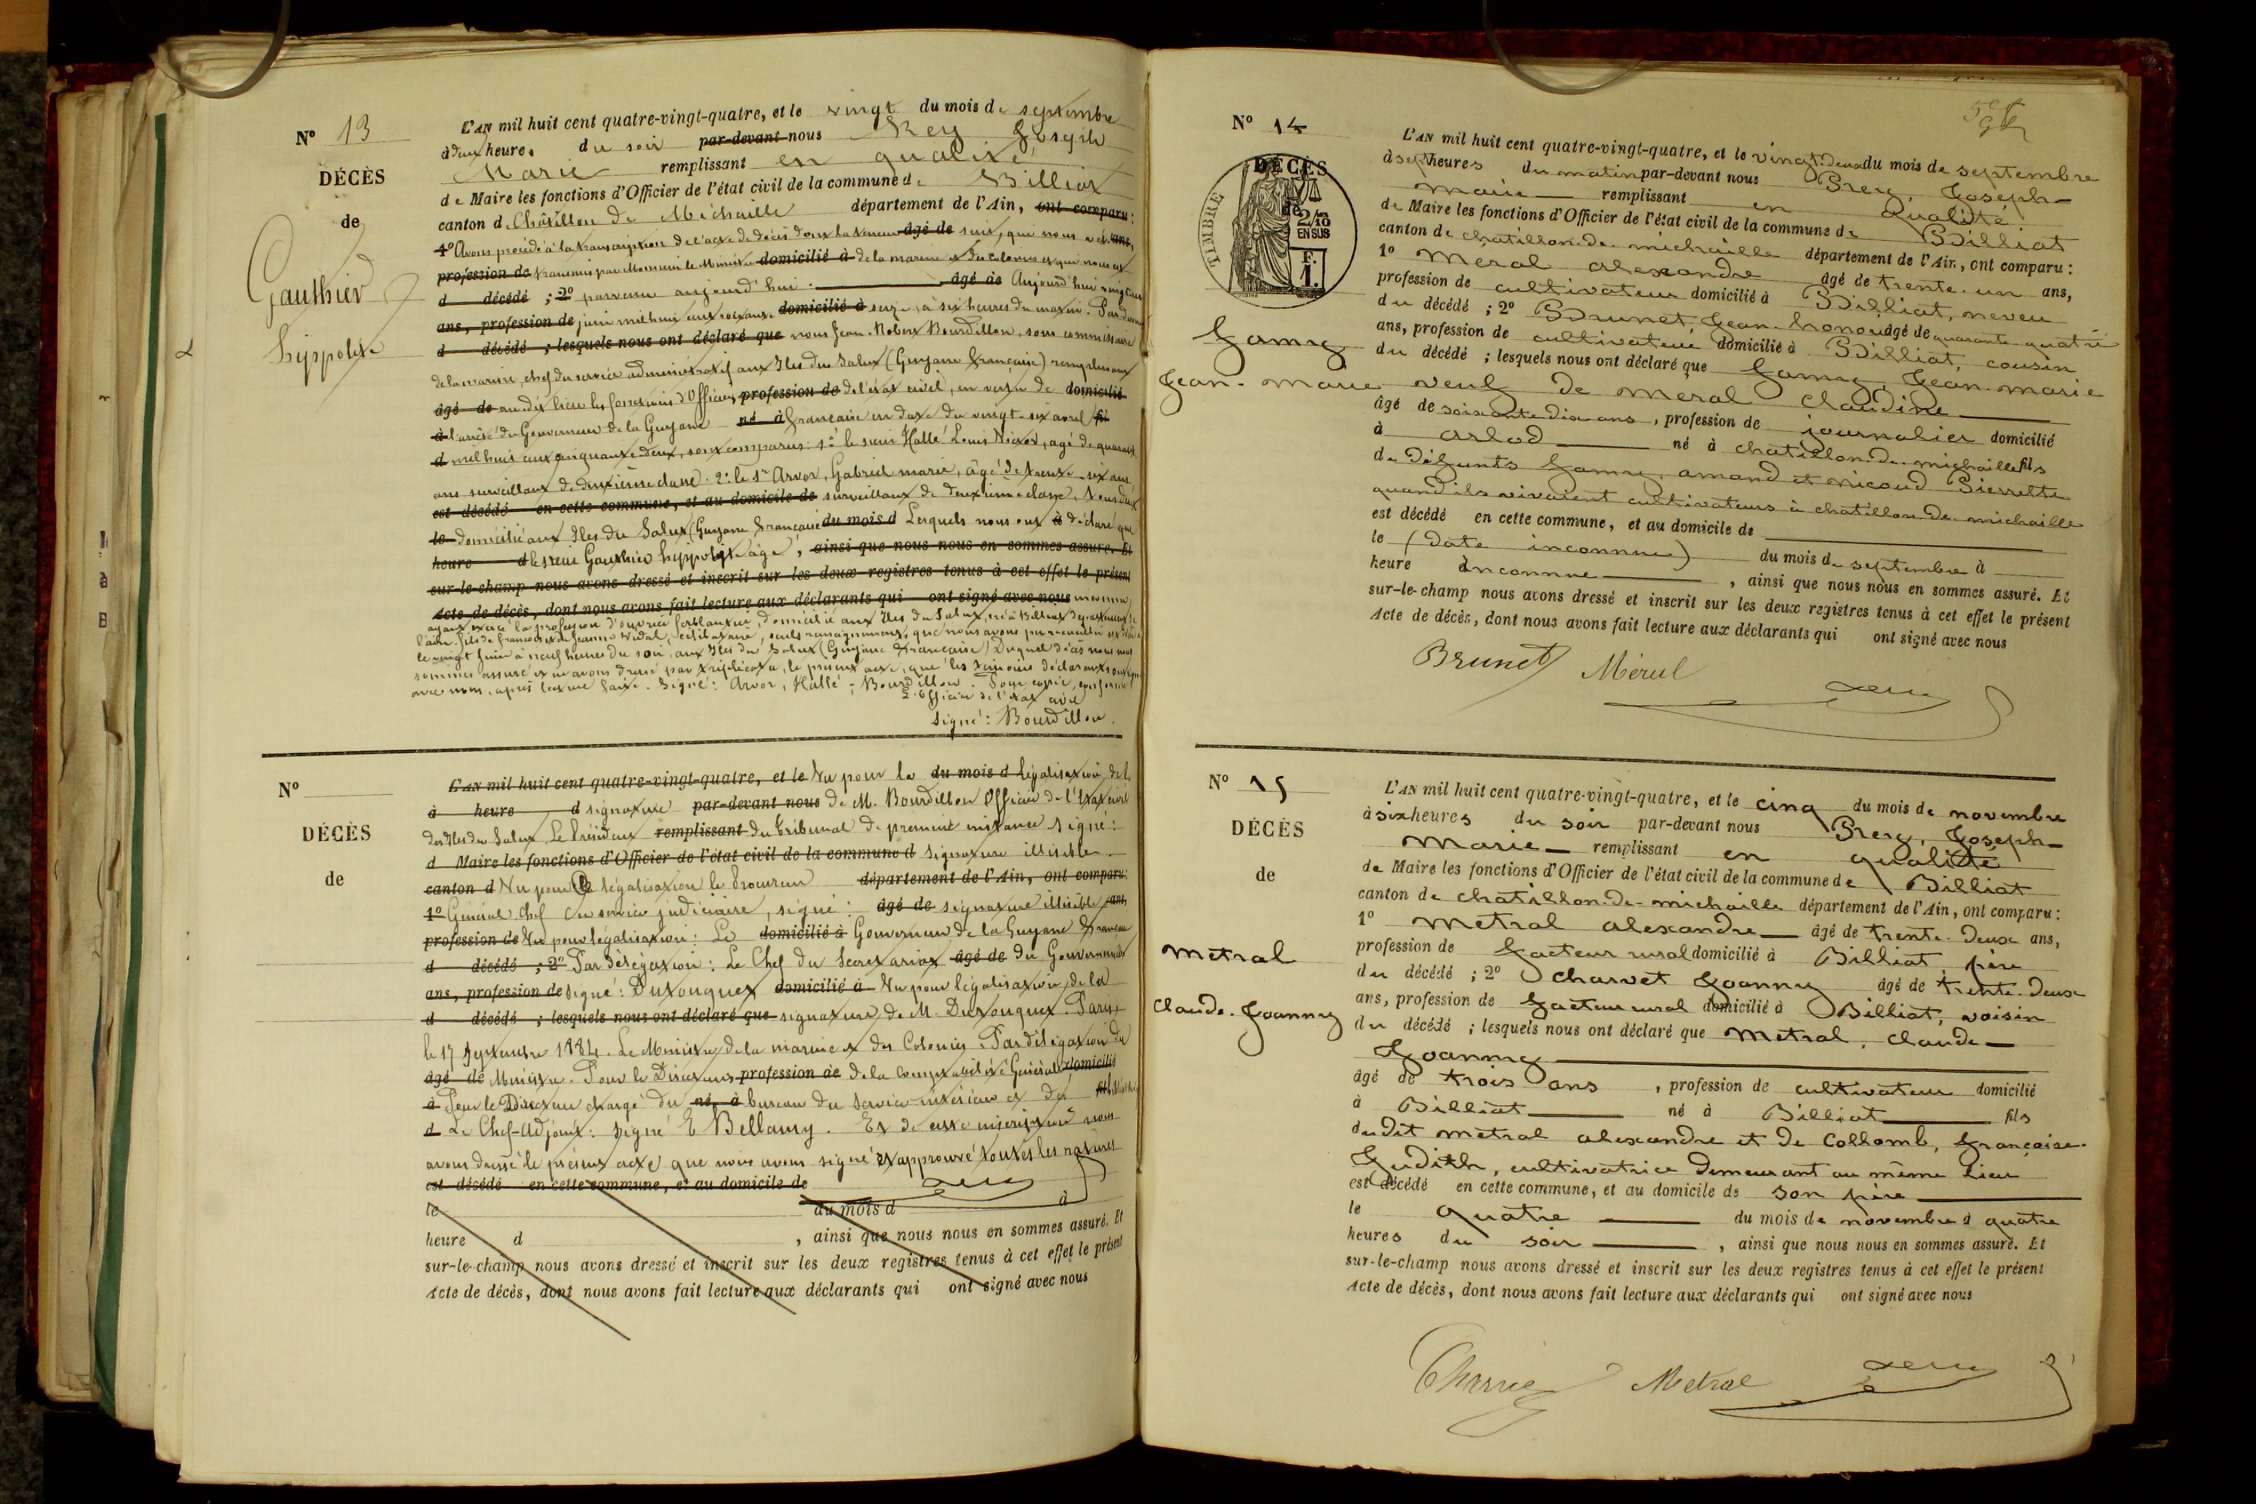 N° 13
DÉCÈS
de
Gauthier
hyppolite
L'AN mil huit cent quatre-vingt-quatre, et le vingt du mois de septembre
à deux heures du soir par-devant nous Rey Joseph
Marie remplissant en qualité
de Maire les fonctions d'Officier de l'état civil de la commune de Billiat
canton de Châtillon de Michaille département de l'Ain, ont comparu :
1° Avons procédé à la transcription de l'acte de décès dont la teneur âgé de suit, que nous a été ans,
profession de transmis par Monsieur le Ministre domicilié à de la marine et des colonies et qui nous est
d décédé ; 2° parvenu aujourd'hui : âgé de Aujourd'hui vingt un
ans, profession de juin mil huit cent soixante domicilié à seize, à six heures du matin. Par devant
d décédé ; lesquels nous ont déclaré que nous Jean Robert Bourdillon, sous commissaire
de la marine, chef du service administratif aux Iles du Salut (Guyane française) remplissant
âgé de au dit lieu les fonctions d'Officier profession de de l'état civil, en vertu de domicilié
à l'arrêté du Gouverneur de la Guyane né à française en date du vingt-six avril fil
d mil huit cent cinquante deux, sont comparus : 1° le sieur Hallé Louis Victor, agé de quarante
ans surveillant de deuxième classe. 2° le Sr Arvor, Gabriel marie, âgé de trente-six ans
est décédé en cette commune, et au domicile de surveillant de deuxième classe, tous deux
le domiciliés aux Iles du Salut (Guyane française du mois d Lesquels nous ont à déclaré que
heure d le sieur Gauthier hyppolyte âgé , ainsi que nous nous en sommes assuré. Et
sur-le-champ nous avons dressé et inscrit sur les deux registres tenus à cet effet le présent
Acte de décès, dont nous avons fait lecture aux déclarants qui ont signé avec nous
ayant exercé la profession d'ouvrier ferblantier, domicilié aux Iles du Salut, né à Billiat département de
l'ain, fils de françois et de Jeanne Vidal, célibataire, seuls renseignements que nous avons pu recueillir est décédé
le vingt juin à neuf heures du soir, aux Iles du Salut (Guyane française) Duquel décès nous nous
sommes assuré et en avons dressé par triplicata, le présent acte, que les témoins déclarants ont signé
avec nous, après lecture faite. Signé : Arvor, Hallé ; Bourdillon. Pour copie conforme
L'Officier de l'état civil
Signé : Bourdillon.
N°
DÉCÈS
de
L'AN mil huit cent quatre-vingt-quatre, et le Vu pour la du mois d légalisation de la
à heure d signature par-devant nous de M. Bourdillon Officier de l'Etat civil
des Iles du Salut. Le Président remplissant du Tribunal de première instance signé :
d Maire les fonctions d'Officier de l'état civil de la commune d Signature illisible.
canton d Vu pour la légalisation le Procureur département de l'Ain, ont comparu:
1° Général, chef du service judiciaire, signé : âgé de signature illisible ans,
profession de Vu pour légalisation : Le domicilié à Gouverneur de la Guyane française
d décédé ; 2° Par délégation : Le Chef du Secrétariat âgé de du Gouvernement
ans, profession de signé : Dutouquet domicilié à Vu pour légalisation de la
d décédé ; lesquels nous ont déclaré que signature de M. Dutouquet. Paris,
le 17 Septembre 1884. Le Ministre de la marine et des Colonies. Par délégation du
âgé de Ministre. Pour le Directeur profession de de la Comptabilité Générale domicilié
à Pour le Directeur chargé du né à bureau du service intérieur et des fil
d Le Chef-Adjoint : signé E Bellamy. Et de cette inscription nous
avons dressé le présent acte que nous avons signé et approuvé toutes les ratures
est décédé en cette commune, et au domicile de
le du mois d à
heure d , ainsi que nous nous en sommes assuré. Et
sur-le-champ nous avons dressé et inscrit sur les deux registres tenus à cet effet le présent
Acte de décès, dont nous avons fait lecture aux déclarants qui ont signé avec nous
N° 14
DÉCÈS
de
TIMBRE
2/10
EN SUS
F.
1.
Famy
Jean-marie
L'AN mil huit cent quatre-vingt-quatre, et le vingt-deux du mois de septembre
à sept heures du matin par-devant nous Rey, Joseph-
marie remplissant en qualité
de Maire les fonctions d'Officier de l'état civil de la commune de Billiat
canton de chatillon-de-michaille département de l'Ain, ont comparu :
1° Meral alexandre âgé de trente-un ans,
profession de cultivateur domicilié à Billiat, neveu
du décédé ; 2° Brunet, Jean-honoré âgé de quarante-quatre
ans, profession de cultivateur domicilié à Billiat, cousin
du décédé ; lesquels nous ont déclaré que Famy, Jean-marie
veuf de meral claudine
âgé de soixante dix ans, profession de journalier domicilié
à arlod né à chatillon-de-michaille fils
de défunts Famy, amand et nicoud Pierrette
quand ils vivaient cultivateurs à chatillon-de-michaille
est décédé en cette commune, et au domicile de
le (date inconnue) du mois de septembre à
heure inconnue , ainsi que nous nous en sommes assuré. Et
sur-le-champ nous avons dressé et inscrit sur les deux registres tenus à cet effet le présent
Acte de décès, dont nous avons fait lecture aux déclarants qui ont signé avec nous
Brunet Méral
N° 15
DÉCÈS
de
metral
Claude-Joanny
L'AN mil huit cent quatre-vingt-quatre, et le cinq du mois de novembre
à six heures du soir par-devant nous Rey, Joseph-
Marie remplissant en qualité
de Maire les fonctions d'Officier de l'état civil de la commune de Billiat
canton de chatillon-de-michaille département de l'Ain, ont comparu :
1° metral alexandre âgé de trente-deux ans,
profession de facteur rural domicilié à Billiat, père
du décédé ; 2° Charvet Joanny âgé de trente-deux
ans, profession de facteur rural domicilié à Billiat, voisin
du décédé ; lesquels nous ont déclaré que metral, claude-
Joanny
âgé de trois ans , profession de cultivateur domicilié
à Billiat né à Billiat fils
du dit metral alexandre et de Collomb, françoise-
Judith, cultivatrice demeurant au même lieu
est décédé en cette commune, et au domicile de son père
le quatre du mois de novembre à quatre
heures du soir , ainsi que nous nous en sommes assuré. Et
sur-le-champ nous avons dressé et inscrit sur les deux registres tenus à cet effet le présent
Acte de décès, dont nous avons fait lecture aux déclarants qui ont signé avec nous
Metral